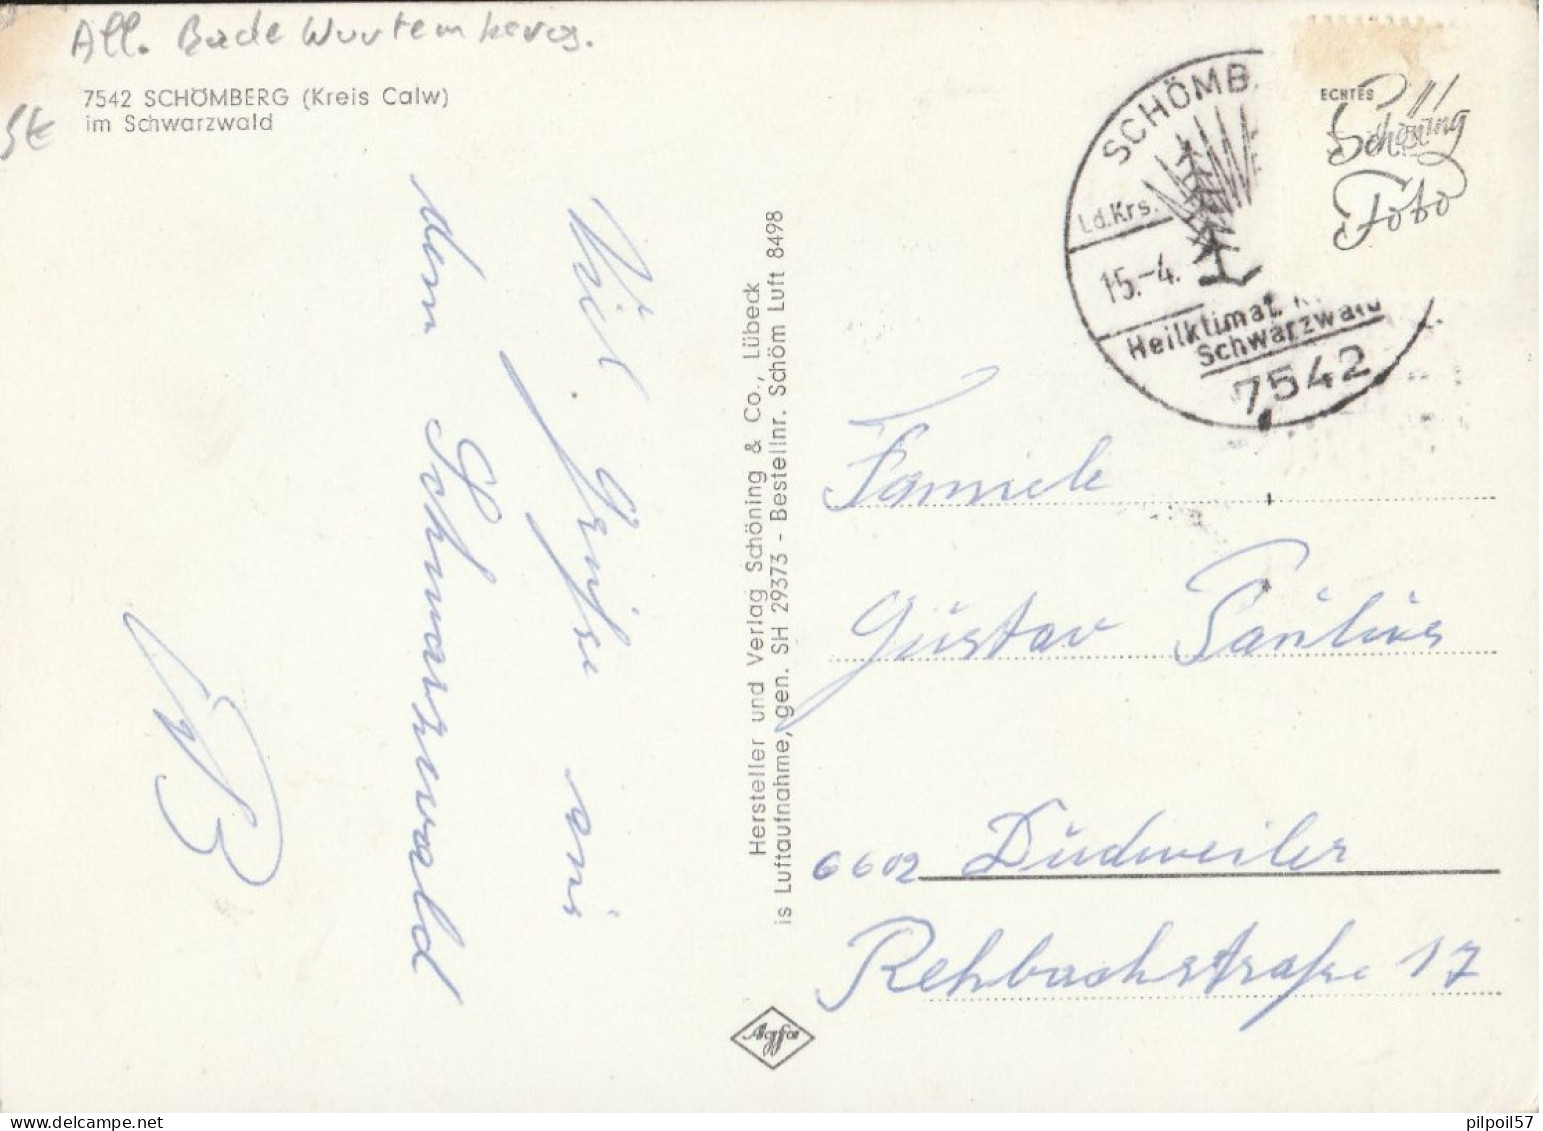 All. Bade Wurtemberg.
5€
7542 SCHÖMBERG (Kreis Calw)
im Schwarzwald
Viele Grüße aus
dem Schwarzwald
Hersteller und Verlag Schöning & Co., Lübeck
is Luftaufnahme, gen. SH 29373 - Bestellnr. Schöm Luft 8498
Agfa
SCHÖMB
Ld.Krs.
15.-4.
Heilklimat. K
Schwarzwald
7542
ECHTES
Schöning
Foto
Familie
Gustav Paulus
6602 Dudweiler
Rehbachstraße 17
delcampe.net
pilpoil57